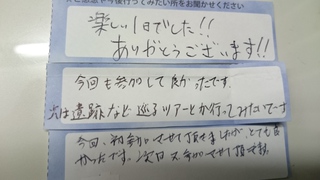 ご感想や今後行ってみたい所をお聞かせください
楽しい1日でした!!
ありがとうございます!!
今回も参加して良かったです。
遺跡など巡るツアーとか行ってみたいでーす
今回、初参加させて頂きましたが、とても良
かったです。次回又参加させて頂きます。